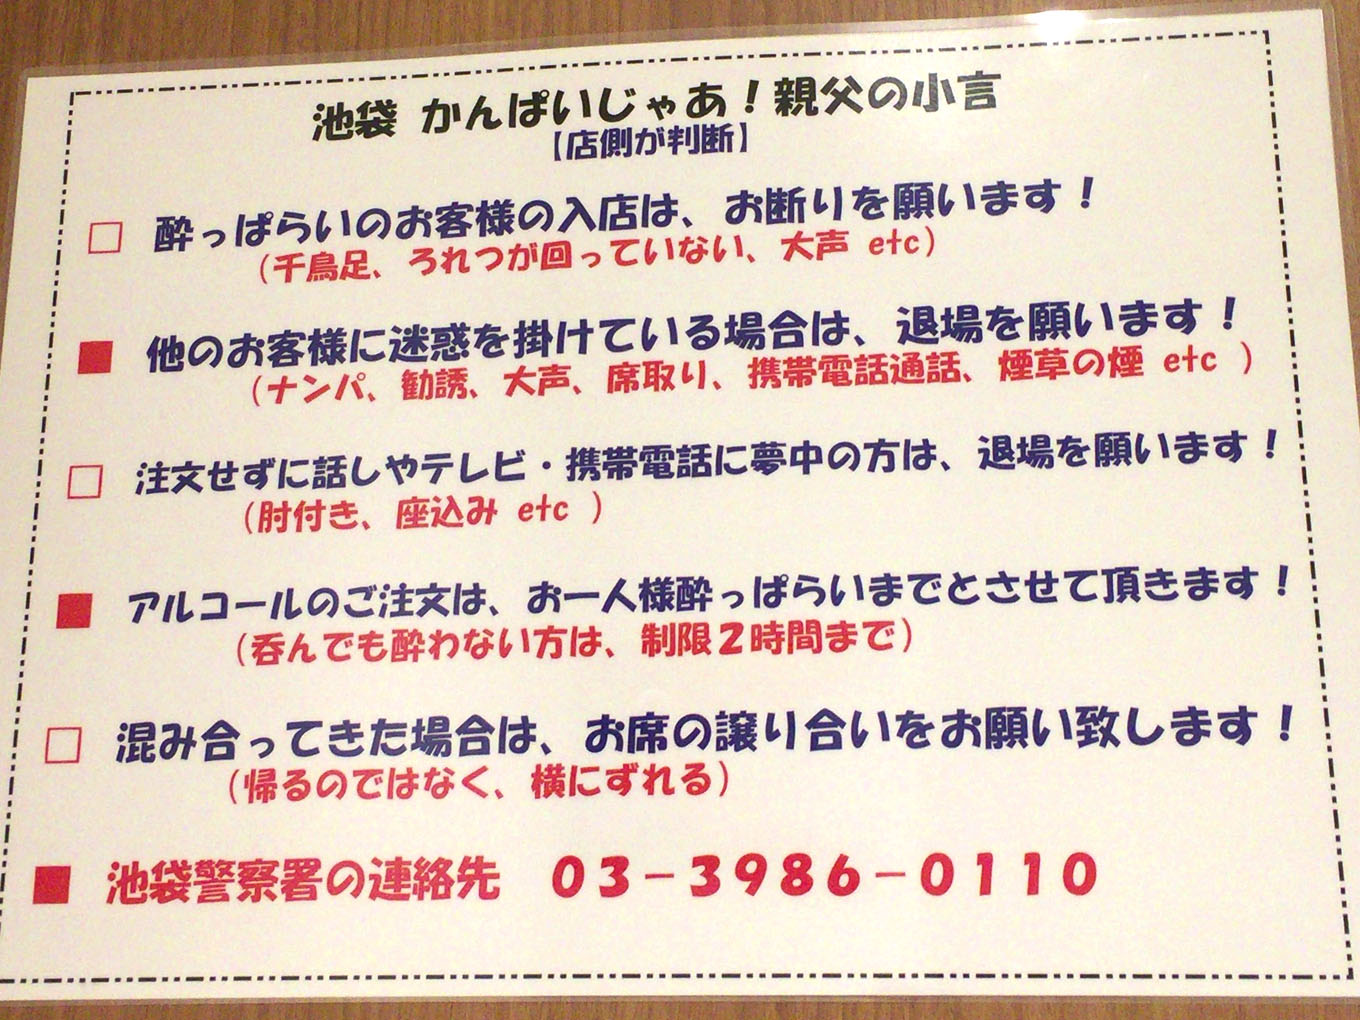 池袋 かんぱいじゃあ！親父の小言
【店側が判断】
□ 酔っぱらいのお客様の入店は、お断りを願います！
（千鳥足、ろれつが回っていない、大声 etc）
■ 他のお客様に迷惑を掛けている場合は、退場を願います！
（ナンパ、勧誘、大声、席取り、携帯電話通話、煙草の煙 etc ）
□ 注文せずに話しやテレビ・携帯電話に夢中の方は、退場を願います！
（肘付き、座込み etc ）
■ アルコールのご注文は、お一人様酔っぱらいまでとさせて頂きます！
（呑んでも酔わない方は、制限２時間まで）
□ 混み合ってきた場合は、お席の譲り合いをお願い致します！
（帰るのではなく、横にずれる）
■ 池袋警察署の連絡先 ０３－３９８６－０１１０